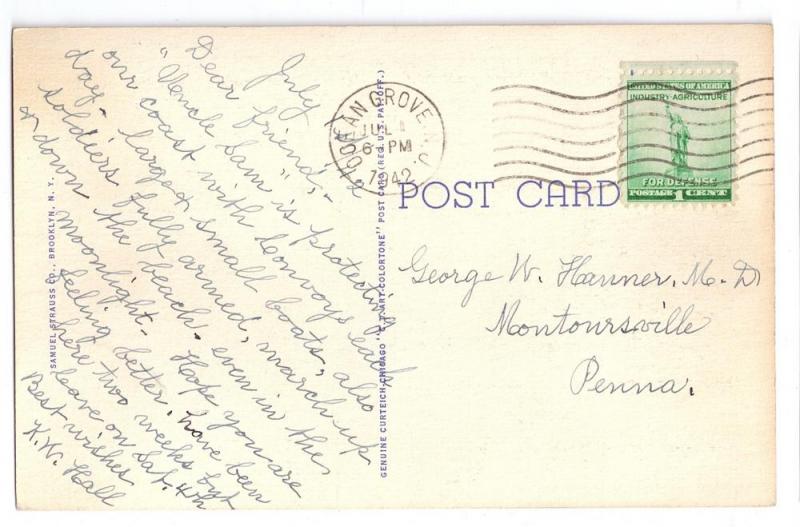 July 1
Dear friend;-
"Uncle Sam" is protecting
our coast with Convoys each
day - large & small boats, also
soldiers fully armed, march up
or down the beach. even in the
moonlight - Hope you are
feeling better, have been
here two weeks but
leave on Sat. 4th
Best wishes
K.W. Hall
SAMUEL STRAUSS CO., BROOKLYN, N. Y.
GENUINE CURTEICH-CHICAGO "C.T. ART-COLORTONE" POST CARD (REG. U.S. PAT. OFF.)
OCEAN GROVE, N.J.
JUL 1
6 PM
1942
POST CARD
UNITED STATES OF AMERICA
INDUSTRY-AGRICULTURE
FOR DEFENSE
POSTAGE 1 CENT
George W. Hanner. M.D
Montoursville
Penna.